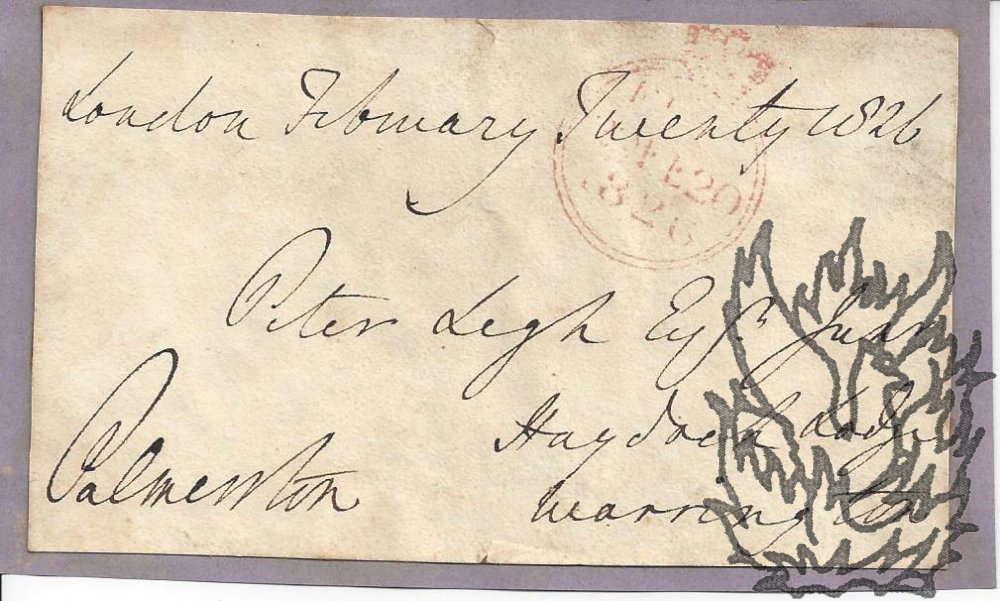 London February Twenty 1826
FE 20
1826
Peter Legh Esqr. Junr
Haydock Lodge
Palmerston
Warrington